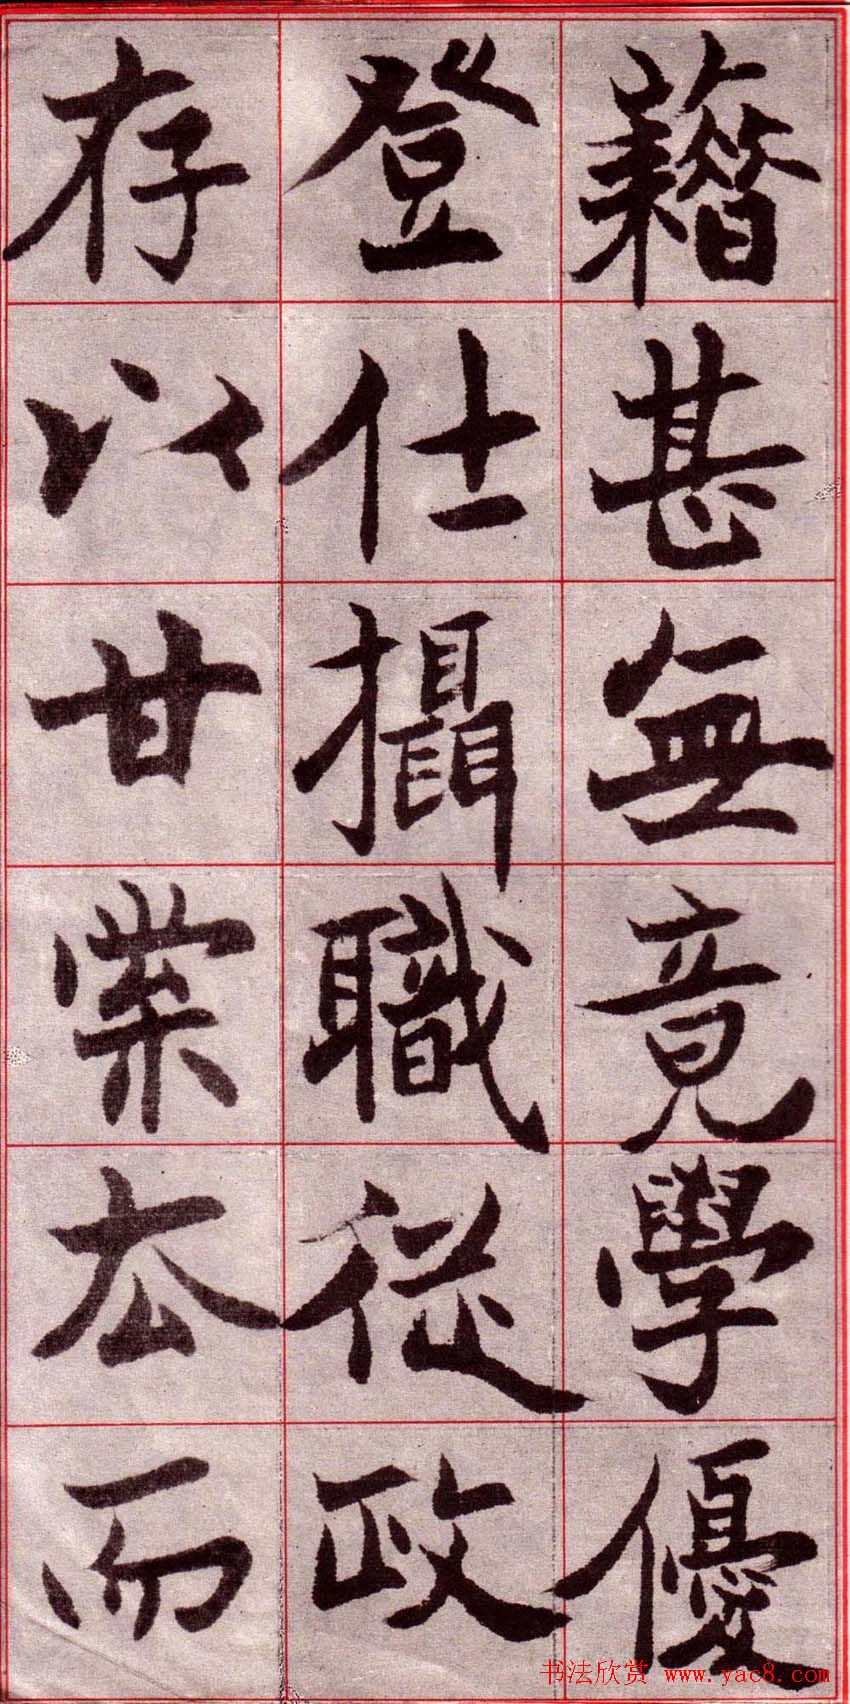 藉甚無竟學優
登仕攝職從政
存以甘棠去而
书法欣赏 www.yac8.com